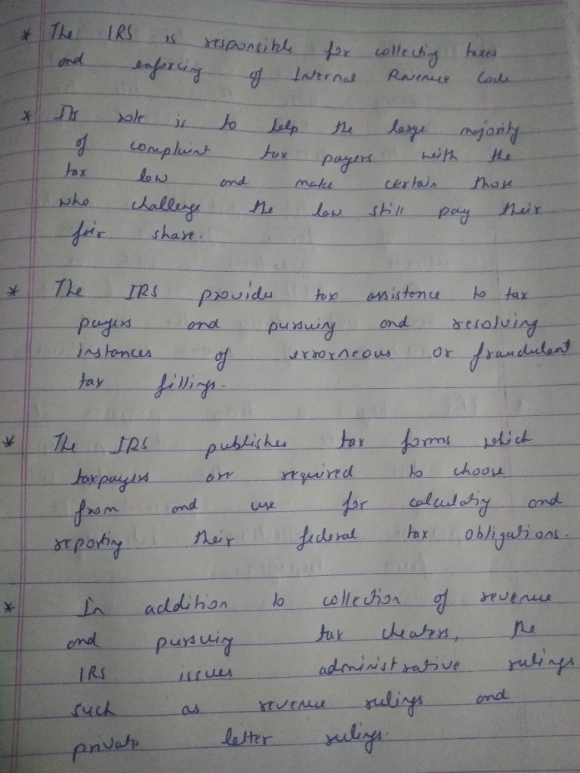 * The IRS is responsible for collecting taxes
and enforcing of Internal Revenue Code
* Its role is to help the large majority
of complaint tax payers with the
tax low and make certain those
who challenge the low still pay their
fair share.
* The IRS provides tax assistence to tax
payers and pursuing and resolving
instances of errorneous or fraudulent
tax fillings.
* The IRS publishes tax forms which
taxpayers are required to choose
from and use for calculating and
reporting their federal tax obligations.
* In addition to collection of revenue
and pursuing tax cheaters, the
IRS issues administrative rulings
such as revenue rulings and
private letter rulings.